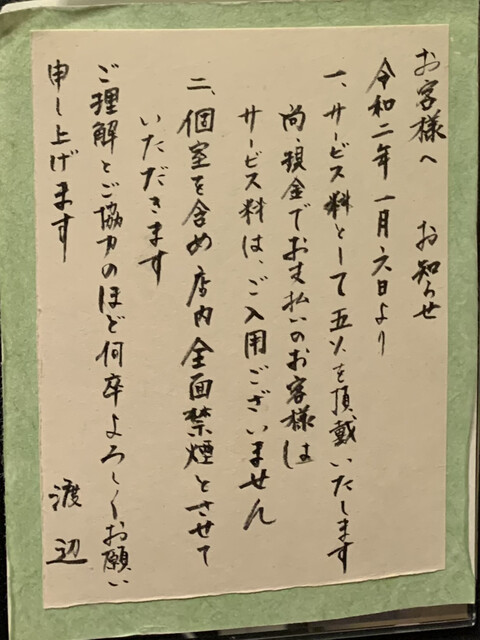 お客様へ　お知らせ
令和二年一月六日より
一、サービス料として五％を頂戴いたします
尚、現金でお支払いのお客様は
サービス料は、ご入用ございません
二、個室を含め店内全面禁煙とさせて
いただきます
ご理解とご協力のほど何卒よろしくお願い
申し上げます
渡辺